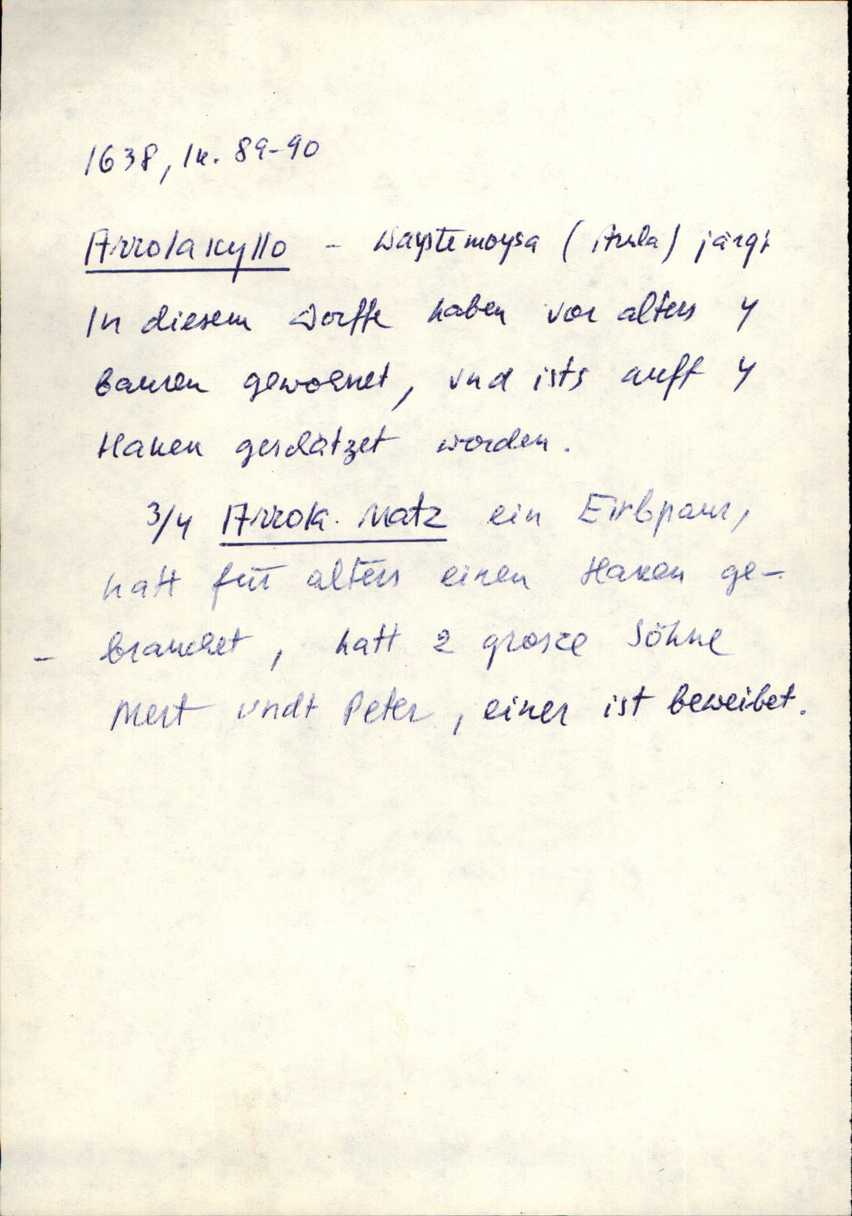 1638, lk. 89-90
Arrolakyllo - Waystemoysa ( Aula) järgi
In diesem Dorffe haben vor alters 4
bauren gewohnet, vnd ists auff 4
Haken geschätzet worden.
3/4 Arrola. Matz ein Eirbpaur,
hatt für alters einen Haken ge-
- brauchet, hatt 2 grosze Söhne
Mert vndt Peter, einer ist beweibet.